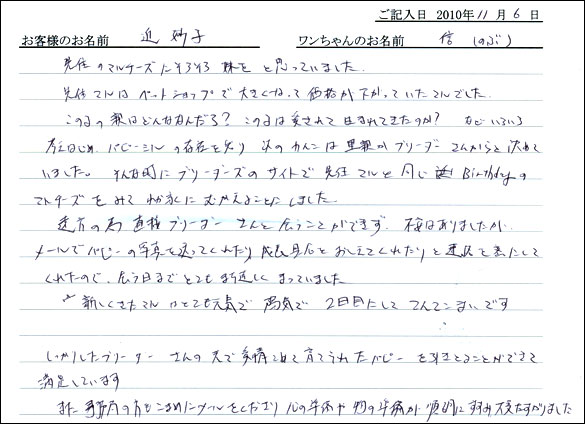 ご記入日 2010年 11月 6日
お客様のお名前 辺 妙子 ワンちゃんのお名前 信 (のぶ)
先住のマルチーズにそろそろ 妹を と思っていました。
先住マルはペットショップで大きくなって価格が下がっていたマルでした。
この子の親はどんな なんだろ? この子は愛されて生まれてきたのか? などいろいろ
考えはじめ、パピーミルの存在を知り 次のわんこは ブリーダーさんからと決めて
いました。そんな時にブリーダーズのサイトで先住マルと同じ Birthdayの
マルチーズをみて わが家にむかえることにしました。
遠方の為 直接ブリーダーさんと会うことができず、不安はありましたが、
メールでパピーの写真を送ってくれたり 成長具合をおしえてくれたりと連絡を密にして
くれたので、会う日までとても待ち遠しくまっていました。
新しくきたマルはとても元気で 陽気で 2日目にして てんてこまいです
しっかりしたブリーダーさんの元で愛情こめて育てられたパピーを引きとることができて
満足しています
また 事務局の方もこまめにメールをくださり 心の準備や物の準備が順調にすすみ